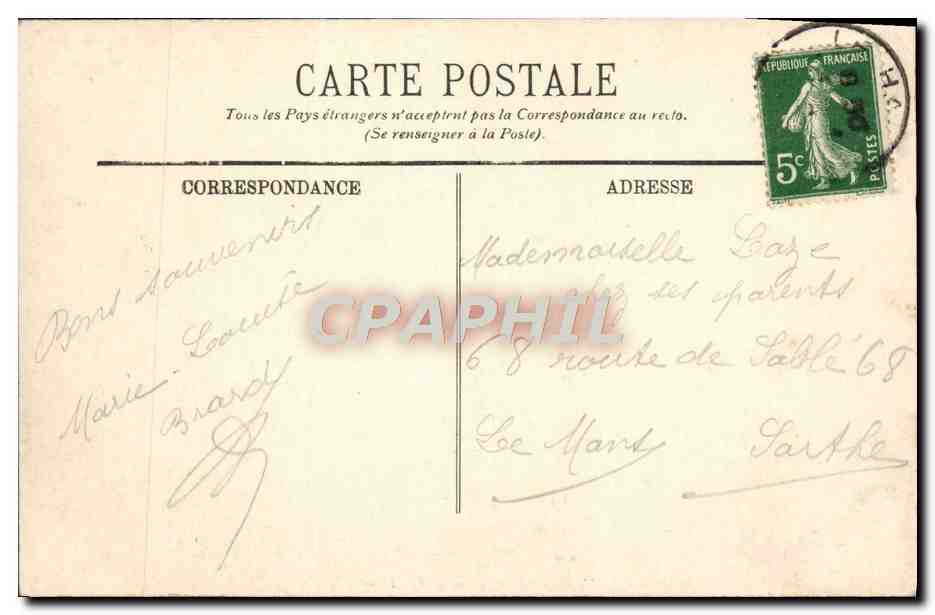 CARTE POSTALE
Tous les Pays étrangers n'acceptent pas la Correspondance au recto.
(Se renseigner à la Poste).
RÉPUBLIQUE FRANÇAISE
5c
POSTES
CORRESPONDANCE
Bons souvenirs
Marie-Louise
Brardy
ADRESSE
Mademoiselle Laze
chez ses parents
68 route de Sablé 68
Le Mans Sarthe
CPAPHIL